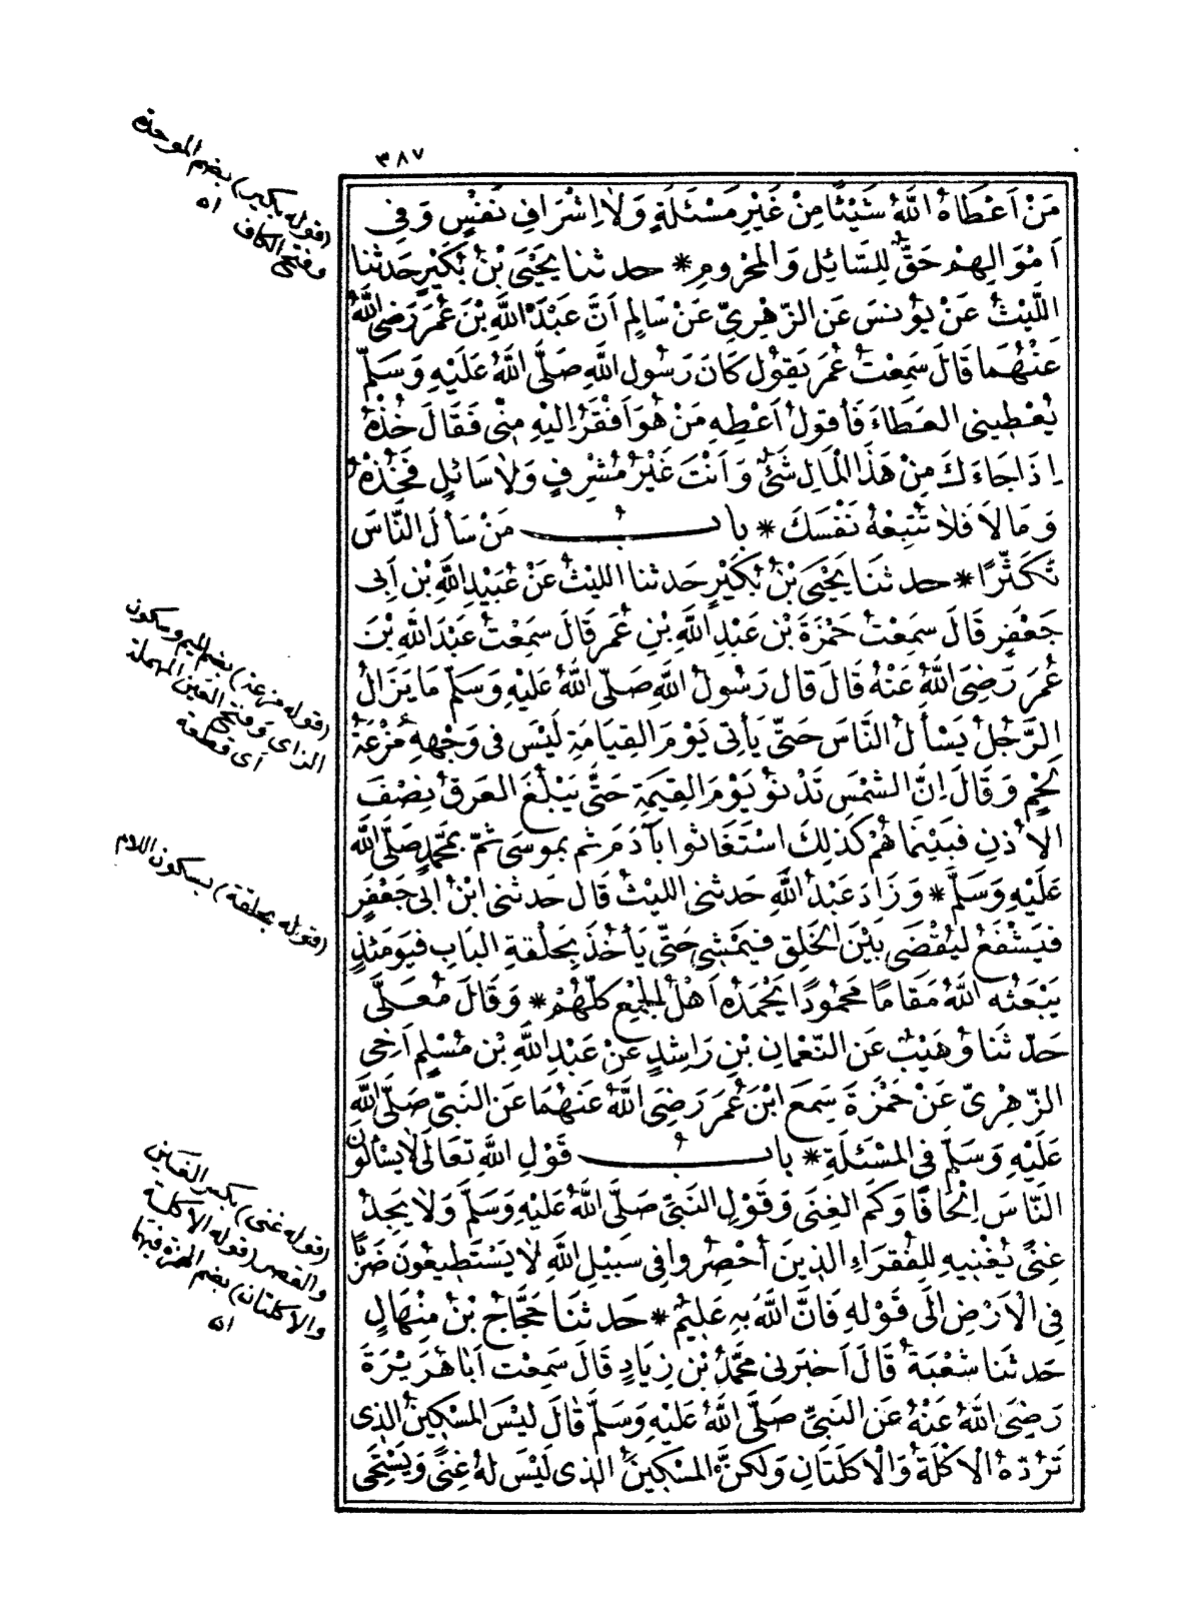 ٣٨٧
مَنْ اَعْطَاهُ اللّٰهُ شَيْئًا مِنْ غَيْرِ مَسْئَلَةٍ وَلَا اِشْرَافِ نَفْسٍ وَفِى
اَمْوَالِهِمْ حَقٌّ لِلسَّائِلِ وَالمَحْرُومِ * حدثنا يَحْيَى بْنُ بُكَيْرٍ حَدثنا
اللَّيْثُ عَنْ يُونسَ عَنِ الزّهْرِىِّ عَنْ سَالِمٍ اَنَّ عَبْدَ اللّٰهِ بْنَ عُمَرَ رَضِىَ اللّٰهُ
عَنْهُمَا قَالَ سَمِعْتُ عُمَرَ يَقُولُ كَانَ رَسُولُ اللّٰهِ صَلَّى اللّٰهُ عَلَيْهِ وَسَلَّمَ
يُعْطِينى العَطَاءَ فَأقولُ اَعْطِهِ مَنْ هُوَ اَفْقَرُ اِلَيْهِ مِنّى فَقَالَ خُذْهُ
اِذَا جَاءَكَ مِنْ هَذَا المَالِ شَئٌ وَاَنْتَ غَيْرُ مُشْرِفٍ وَلَا سَائِلٍ فَخُذْهُ
وَمَا لَا فَلَا تُتْبِعْهُ نَفْسَكَ * بابُ مَنْ سَألَ النَّاسَ
تَكَثُّرًا * حدثَنا يَحْيَى بْنُ بُكَيْرٍ حَدثنا الليْثُ عَنْ عُبَيْدِ اللّٰهِ بْنِ اَبِى
جَعْفَرٍ قَالَ سَمِعْتُ حَمْزَةَ بْنَ عَبْدِ اللّٰهِ بْنِ عُمَرَ قَالَ سَمِعْتُ عَبْدَ اللّٰهِ بْنَ
عُمَرَ رَضِىَ اللّٰهُ عَنْهُ قَالَ قال رَسُولُ اللّٰهِ صَلّى اللّٰهُ عَلَيْهِ وَسَلّمَ مَا يَزَالُ
الرَّجُلُ يَسْألُ النَّاسَ حَتَّى يَأتِى يَوْمَ القِيَامَةِ لَيْسَ فى وَجْهِهِ مُزْعَةُ
لَحْمٍ وَقَالَ اِنَّ الشمْسَ تَدْنو يَوْمَ القِيمَةِ حَتَّى يَبْلُغَ العَرقُ نِصْفَ
الاُذنِ فَبَيْنَمَا هُمْ كَذلِكَ اسْتَغَاثوا بآدَمَ ثم بموسَى ثمّ بمحَمّدٍ صَلَّى اللّٰهُ
عَلَيْهِ وَسَلَّمَ * وَزَادَ عَبْدُ اللّٰهِ حَدثنى الليْثُ قَالَ حَدثنى ابْنُ اَبى جَعْفَرٍ
فيَشْفَعُ لِيُقْضَى بَيْنَ الخَلقِ فيَمْشِى حَتَّى يَأخُذَ بِحَلْقةِ البَابِ فيَوْمَئذٍ
يَبْعَثه اللّٰهُ مَقَامًا مَحْمُودًا يَحْمَدُهُ اَهْلُ الجَمْعِ كلّهُمْ * وَقَالَ مُعَلَّى
حَدّثنَا وُهَيْبٌ عَنِ النّعْمَانِ بْنِ رَاشِدٍ عَنْ عَبْدِ اللّٰهِ بْنِ مُسْلِمٍ اَخِى
الزّهْرِىّ عَنْ حَمْزَةَ سَمِعَ ابْنَ عُمَرَ رَضِىَ اللّٰهُ عَنْهُمَا عَنِ النبىِّ صَلَّى اللّٰهُ
عَلَيْهِ وَسَلَّمَ فِى المَسْئَلَةِ * بابُ قَوْلِ اللّٰهِ تعَالَى لَا يَسْألُونَ
النَّاسَ اِلْحَافًا وَكمِ الغِنَى وَقَوْلِ النَّبِىِّ صَلَّى اللّٰهُ عَلَيْهِ وَسَلَّمَ وَلَا يَجِدُ
غِنًى يُغْنِيهِ لِلْفُقَرَاءِ الذِينَ اُحْصِرُوا فِى سَبِيْلِ اللّٰهِ لَا يَسْتَطِيعُونَ ضَرْبًا
فِى الْاَرْضِ اِلَى قَوْلِهِ فَاِنَّ اللّٰهَ بِهِ عَلِيْمٌ * حَدثنَا حَجَّاجُ بْنُ مِنْهَالٍ
حَدثَنا شعْبَةُ قَالَ اَخبَرنى محَمَّدُ بْن زِيَادٍ قَالَ سَمِعْت اَبَا هُرَيْرَةَ
رَضِىَ اللّٰهُ عَنْهُ عَنِ النَبِىِّ صَلَّى اللّٰهُ عَلَيْهِ وَسَلَّمَ قَالَ لَيْسَ المسْكِينُ الذِى
تَرُدّهُ الْاُكْلَةُ وَالْاُكلَتَانِ وَلَكِنَّ المسْكِينَ الذى لَيْسَ لهُ غِنًى وَيَسْتَحْيِى
(قوله بكير) بضم الموحدة
وفتح الكاف اه
(قوله مزعة) بضم الميم وسكون
الزاى وفتح العين المهملة
اى قطعة
(قوله بحلقة) بسكون اللام
(قوله غنى) بكسر الغين
والقصر (قوله الاكلة
والاكلتان) بضم الهمزة فيهما
اه